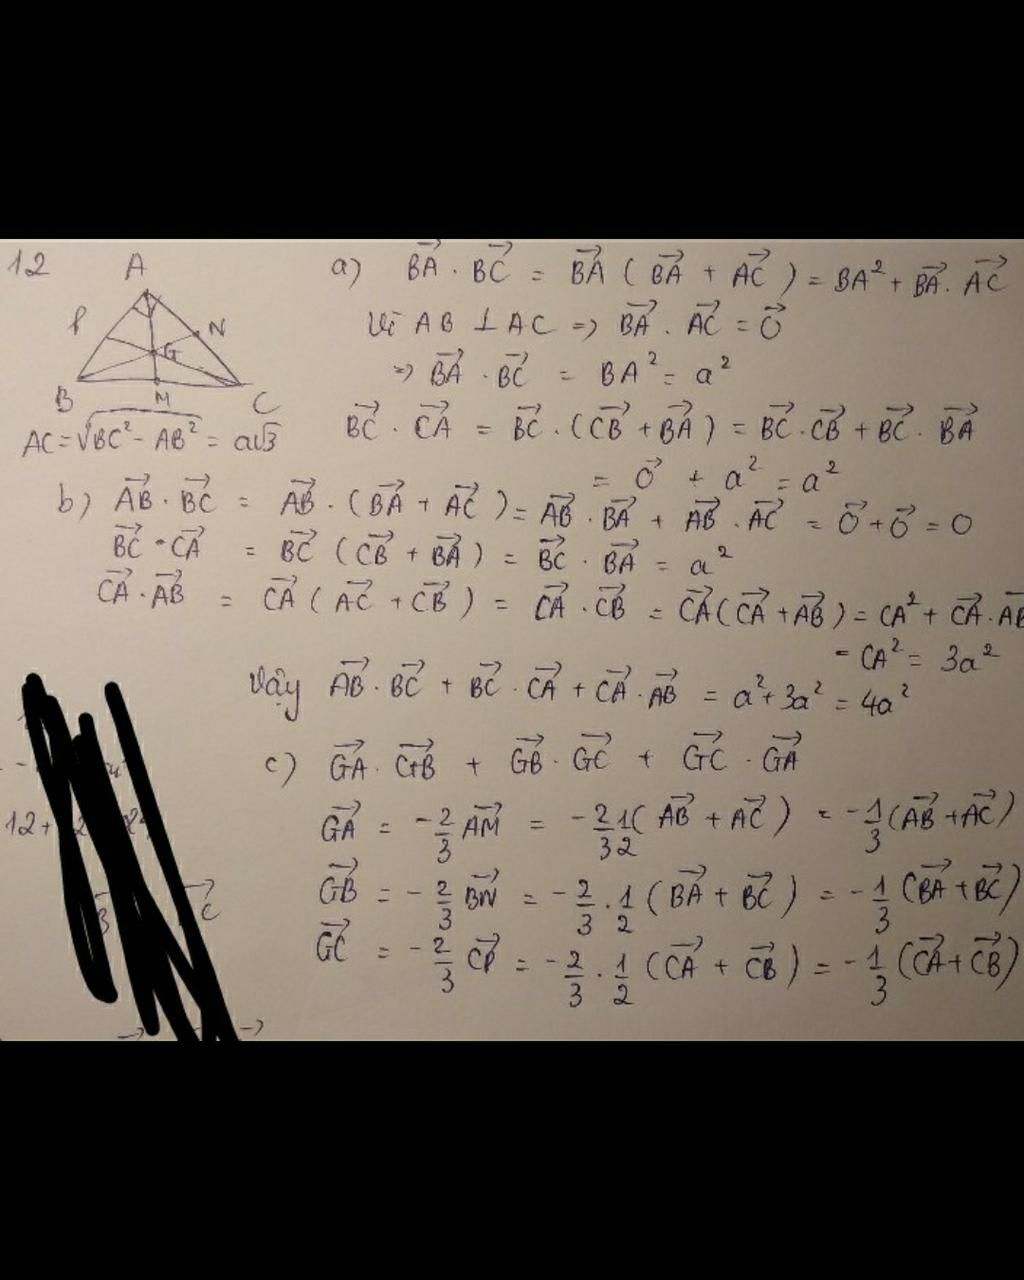 12
A
P
N
G
B
M
C
AC = √(BC² - AB²) = a√3
a) \vec{BA} . \vec{BC} = \vec{BA} ( \vec{BA} + \vec{AC} ) = BA² + \vec{BA} . \vec{AC}
Vì AB ⊥ AC => \vec{BA} . \vec{AC} = \vec{0}
=> \vec{BA} . \vec{BC} = BA² = a²
\vec{BC} . \vec{CA} = \vec{BC} . ( \vec{CB} + \vec{BA} ) = \vec{BC} . \vec{CB} + \vec{BC} . \vec{BA}
= \vec{0} + a² = a²
b) \vec{AB} . \vec{BC} = \vec{AB} . ( \vec{BA} + \vec{AC} ) = \vec{AB} . \vec{BA} + \vec{AB} . \vec{AC} = \vec{0} + \vec{0} = 0
\vec{BC} . \vec{CA} = \vec{BC} ( \vec{CB} + \vec{BA} ) = \vec{BC} . \vec{BA} = a²
\vec{CA} . \vec{AB} = \vec{CA} ( \vec{AC} + \vec{CB} ) = \vec{CA} . \vec{CB} = \vec{CA} ( \vec{CA} + \vec{AB} ) = CA² + \vec{CA} . \vec{AB}
= CA² = 3a²
Vậy \vec{AB} . \vec{BC} + \vec{BC} . \vec{CA} + \vec{CA} . \vec{AB} = a² + 3a² = 4a²
c) \vec{GA} . \vec{GB} + \vec{GB} . \vec{GC} + \vec{GC} . \vec{GA}
\vec{GA} = -2/3 \vec{AM} = -2/3 1/2 ( \vec{AB} + \vec{AC} ) = -1/3 ( \vec{AB} + \vec{AC} )
\vec{GB} = -2/3 \vec{BN} = -2/3 . 1/2 ( \vec{BA} + \vec{BC} ) = -1/3 ( \vec{BA} + \vec{BC} )
\vec{GC} = -2/3 \vec{CP} = -2/3 . 1/2 ( \vec{CA} + \vec{CB} ) = -1/3 ( \vec{CA} + \vec{CB} )
12+